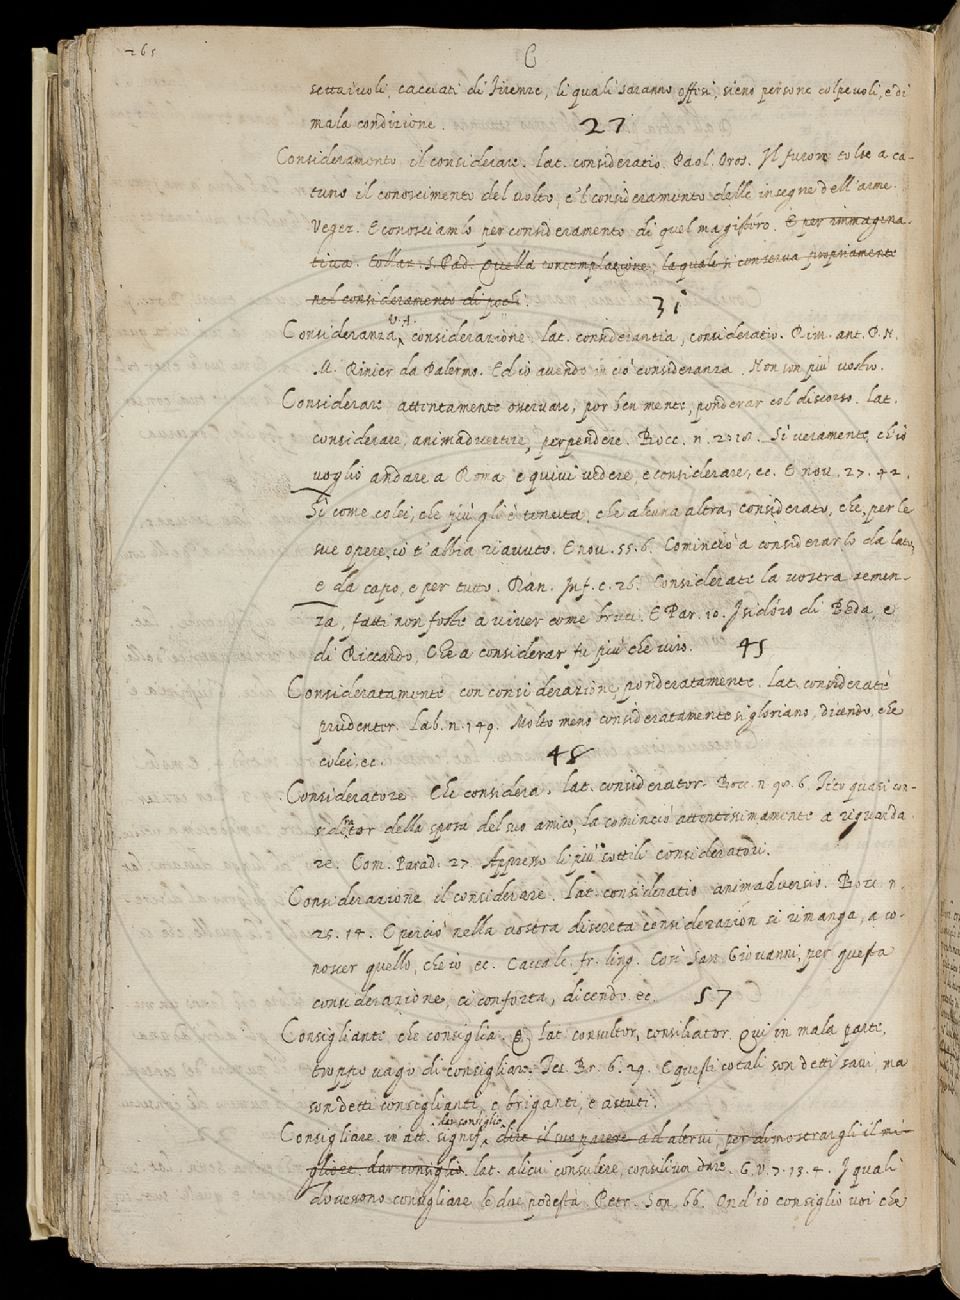 265
C
settaiuoli, cacciati di Firenze, li quali saranno offesi, sieno persone colpevoli, e di
mala condizione. 27
Consideramento il considerare. lat. consideratio. Paol. Oros. Il furore tolse a ca-
tuno il conoscimento del volto, e 'l consideramento delle insegne dell'arme.
Veger. E conosciamlo per consideramento di quel magistéro. E per immagina-
tiva. Collaz. S. Pad. Quella contemplazione, la quale si conserva propriamente
nel consideramento di pochi. 31
Consideranza V.A. considerazione. lat. considerantia, consideratio. Rim. ant. P. N.
M. Rinier da Palermo. Ed io avendo in ciò consideranza. Non son più vostro.
Considerare attentamente osservare, por ben mente, ponderar col discorso. lat.
considerare, animadvertere, perpendere. Bocc. n. 2. 18. Si veramente ch'io
voglio andare a Roma e quivi vedere, e considerare, ec. E nov. 27. 42.
Sì come colei, che più gli è tenuta, che alcuna altra, considerato, che, per le
sue opere, io t'abbia riavuto. E nov. 55. 6. Cominciò a considerarlo da lato,
e da capo, e per tutto. Dan. Inf. c. 26. Considerate la vostra semen-
za, fatti non foste a viver come bruti. E Par. 10. Isidoro di Beda, e
di Riccardo, Che a considerar fu più che viro. 45
Consideratamente con considerazione, ponderatamente. lat. consideratè
prudenter. Lab. n. 149. Molto meno consideratamente si gloriano, dicendo, che
colei, ec. 48
Consideratore Che considera. lat. considerator. Bocc. n. 98. 6. Tito quasi con-
siderator della sposa del suo amico, la cominciò attentissimamente a riguarda
re. Com. Parad. 27. Appresso li più sottili consideratori.
Considerazione il considerare. lat. consideratio animadversio. Bocc. n.
25. 14. E perciò nella vostra discreta considerazion si rimanga, a co-
noscer quello, che io ec. Cavalc. fr. ling. Così San Giovanni, per questa
considerazione, ci conforta, dicendo. ec. 57
Consigliante che consiglia. lat. consultor, consiliator. Qui in mala parte,
troppo vago di consigliare. Tes. Br. 6. 29. E questi cotali son detti savi, ma
son detti conseglianti, e briganti, e astuti.
dar consiglio
Consigliare in att. signif. dire il suo parere ad altrui, per dimostrargli il mi-
gliore. dar consiglio. lat. alicui consulere, consilium dare. G. V. 7. 13. 4. I quali
dovessono consigliare le due podestà. Petr. Son. 66. Ond'io consiglio voi che